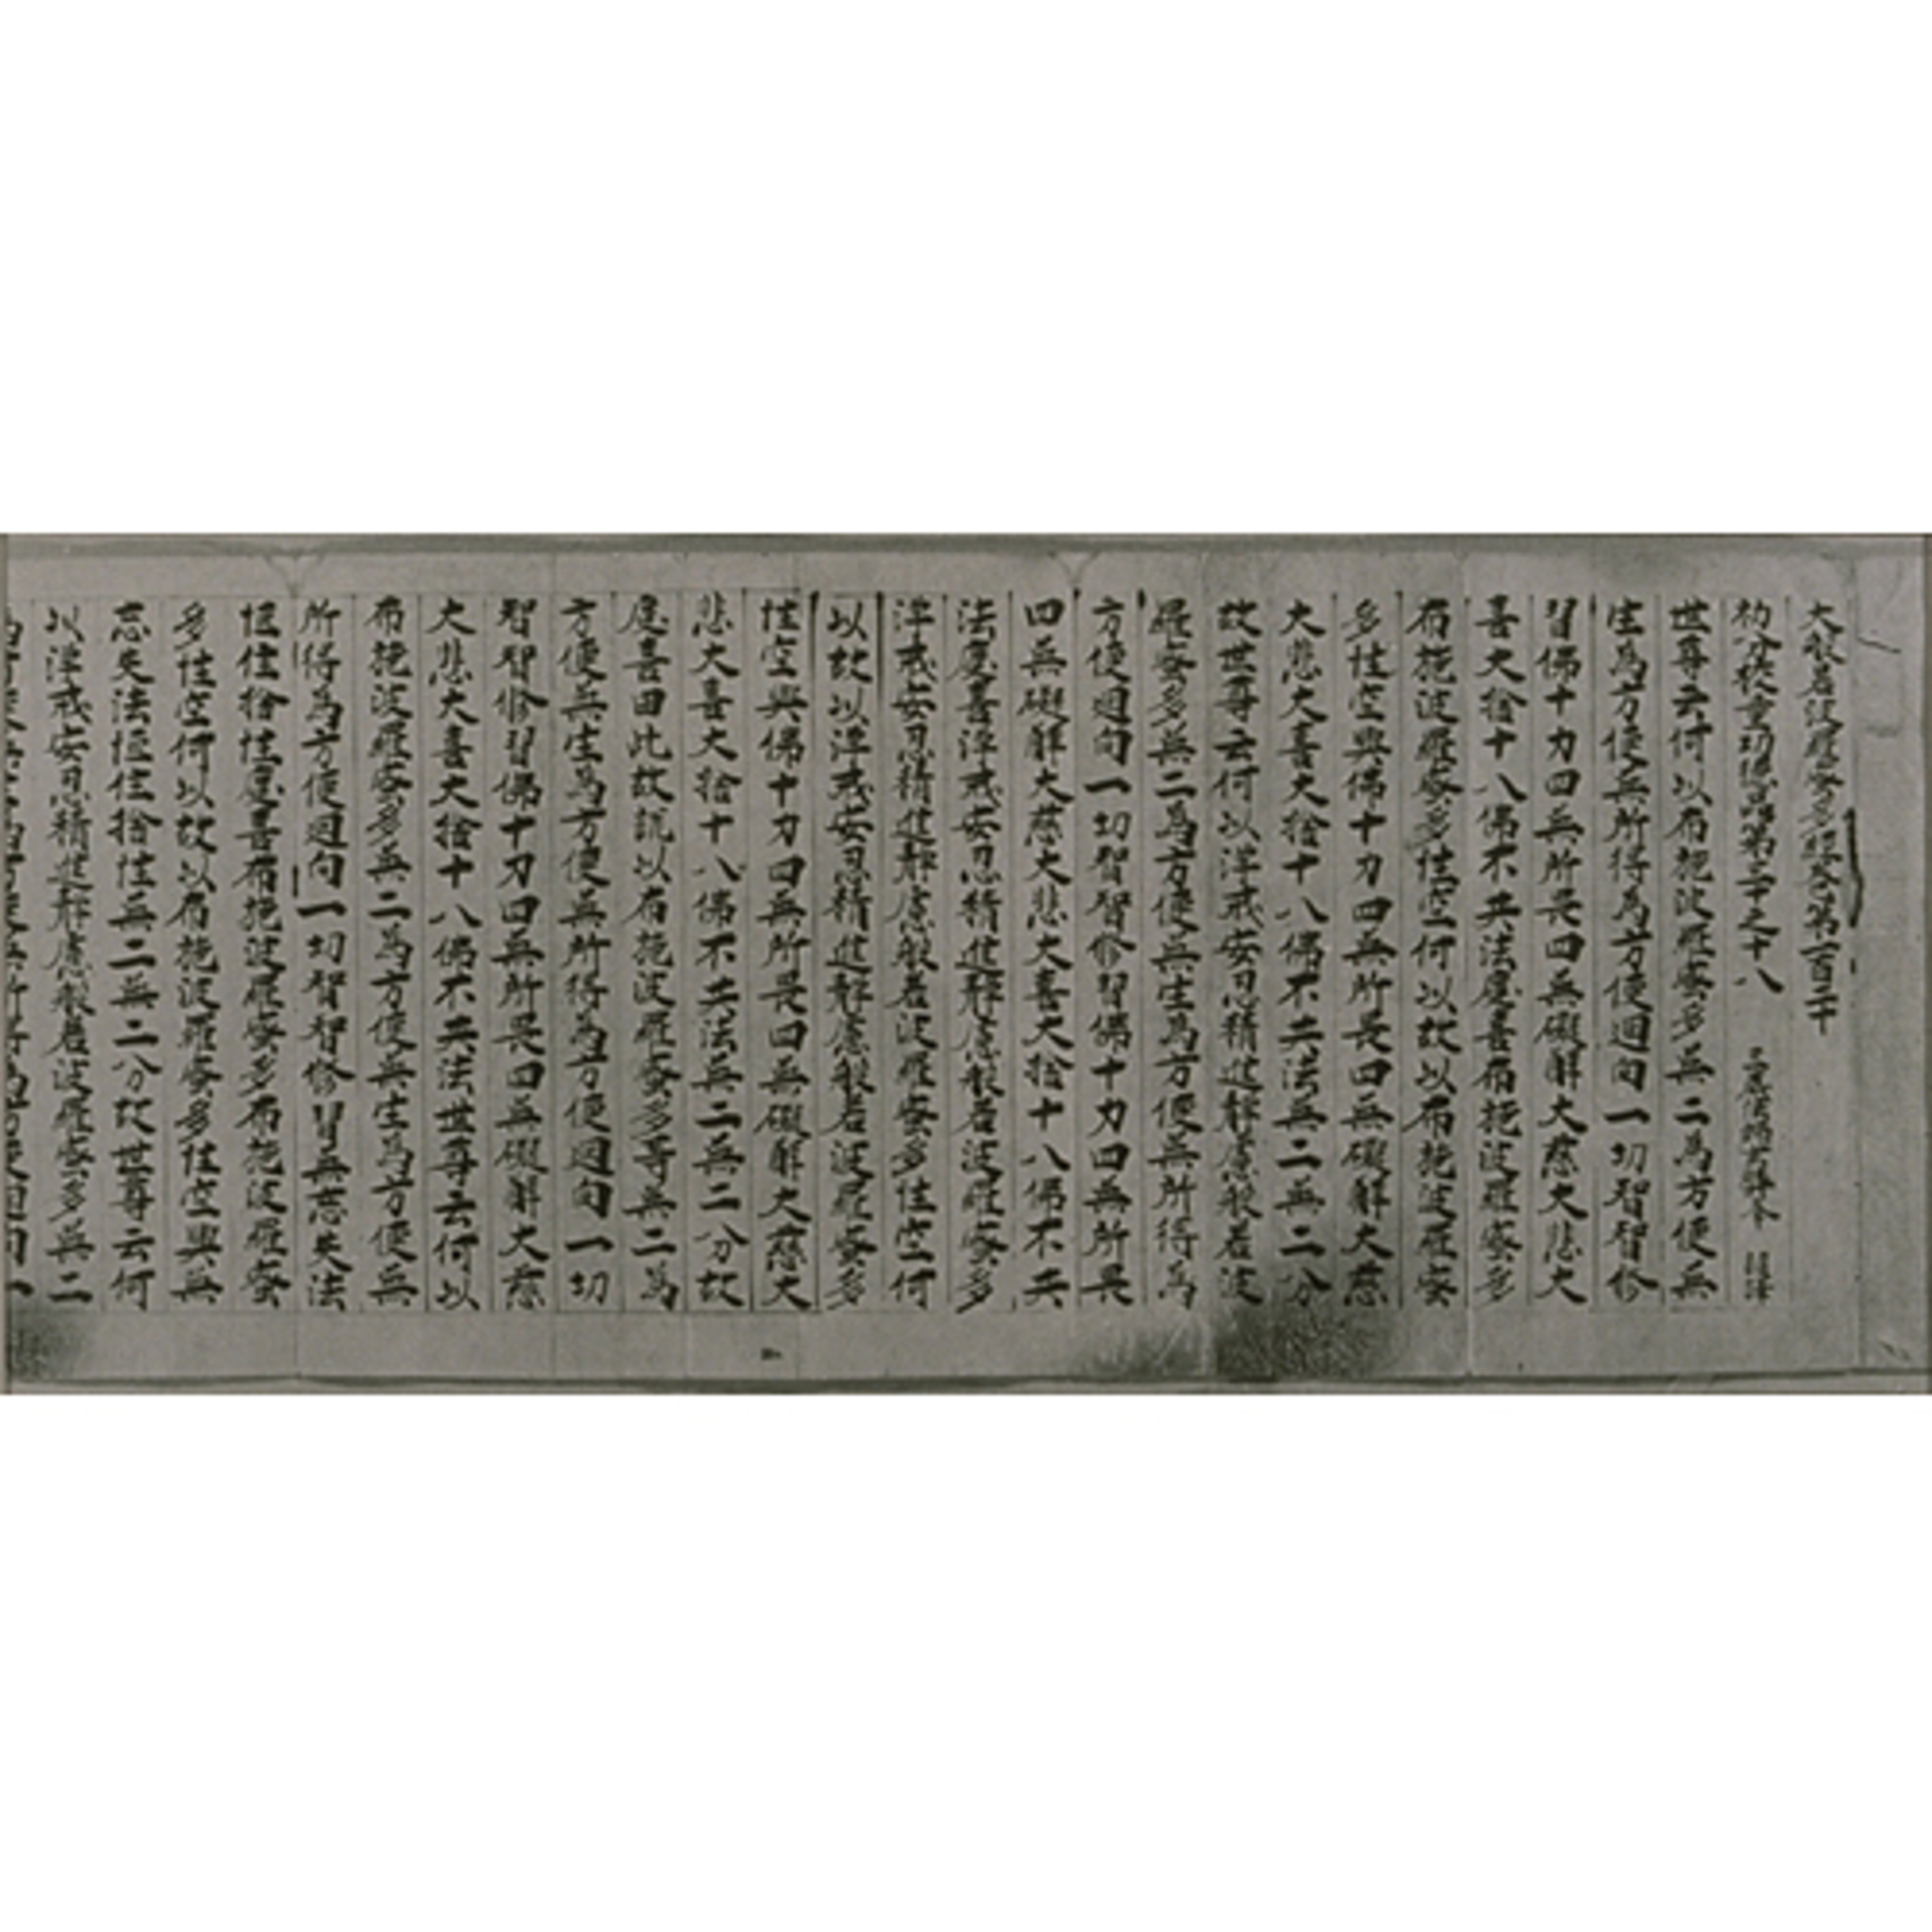 大般若波羅蜜多經卷第一百二十
初分挍量功德品第三十之十八 三藏法師玄奘奉 詔譯
世尊云何以布施波羅蜜多無二為方便無
生為方便無所得為方便迴向一切智智修
習佛十力四無所畏四無礙解大慈大悲大
喜大捨十八佛不共法慶喜布施波羅蜜多
布施波羅蜜多性空何以故以布施波羅蜜
多性空與佛十力四無所畏四無礙解大慈
大悲大喜大捨十八佛不共法無二無二分
故世尊云何以淨戒安忍精進靜慮般若波
羅蜜多無二為方便無生為方便無所得為
方便迴向一切智智修習佛十力四無所畏
四無礙解大慈大悲大喜大捨十八佛不共
法慶喜淨戒安忍精進靜慮般若波羅蜜多
淨戒安忍精進靜慮般若波羅蜜多性空何
以故以淨戒安忍精進靜慮般若波羅蜜多
性空與佛十力四無所畏四無礙解大慈大
悲大喜大捨十八佛不共法無二無二分故
慶喜由此故說以布施波羅蜜多等無二為
方便無生為方便無所得為方便迴向一切
智智修習佛十力四無所畏四無礙解大慈
大悲大喜大捨十八佛不共法世尊云何以
布施波羅蜜多無二為方便無生為方便無
所得為方便迴向一切智智修習無忘失法
恒住捨性慶喜布施波羅蜜多布施波羅蜜
多性空何以故以布施波羅蜜多性空與無
忘失法恒住捨性無二無二分故世尊云何
以淨戒安忍精進靜慮般若波羅蜜多無二